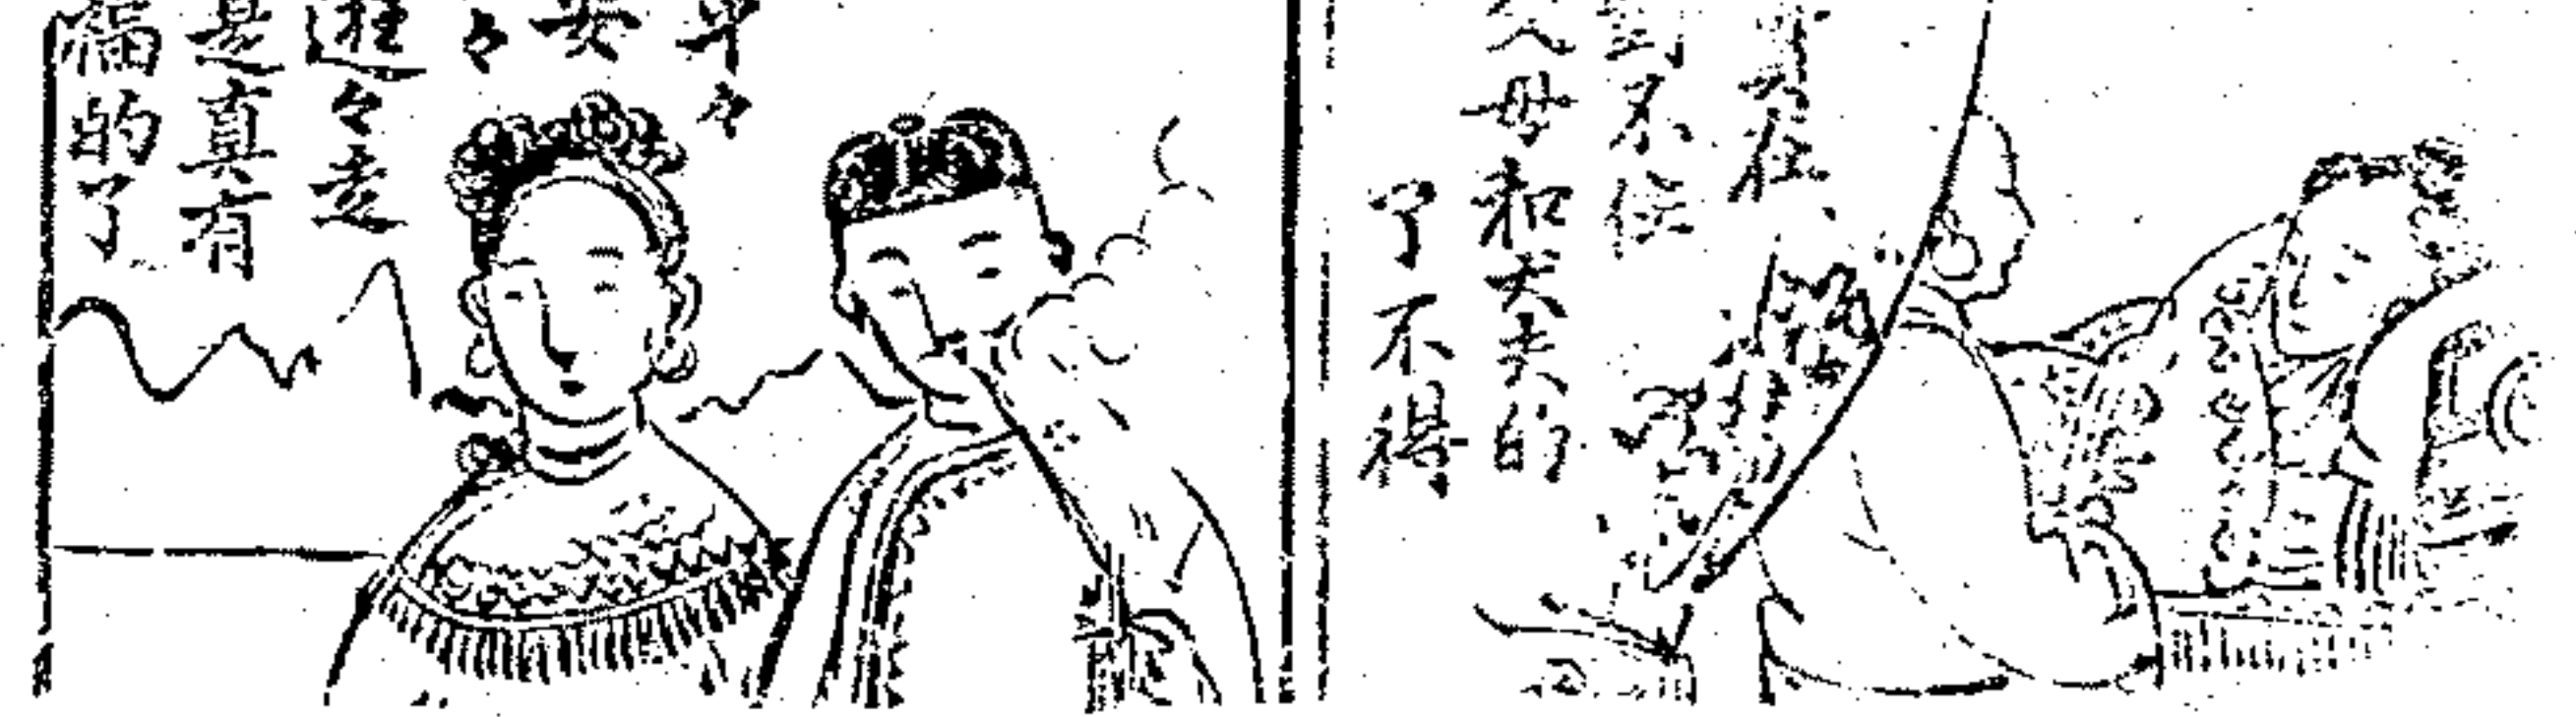 在
不住
父母和丈夫的
了不得
平々
安
々
逛々走
是真有
福的了